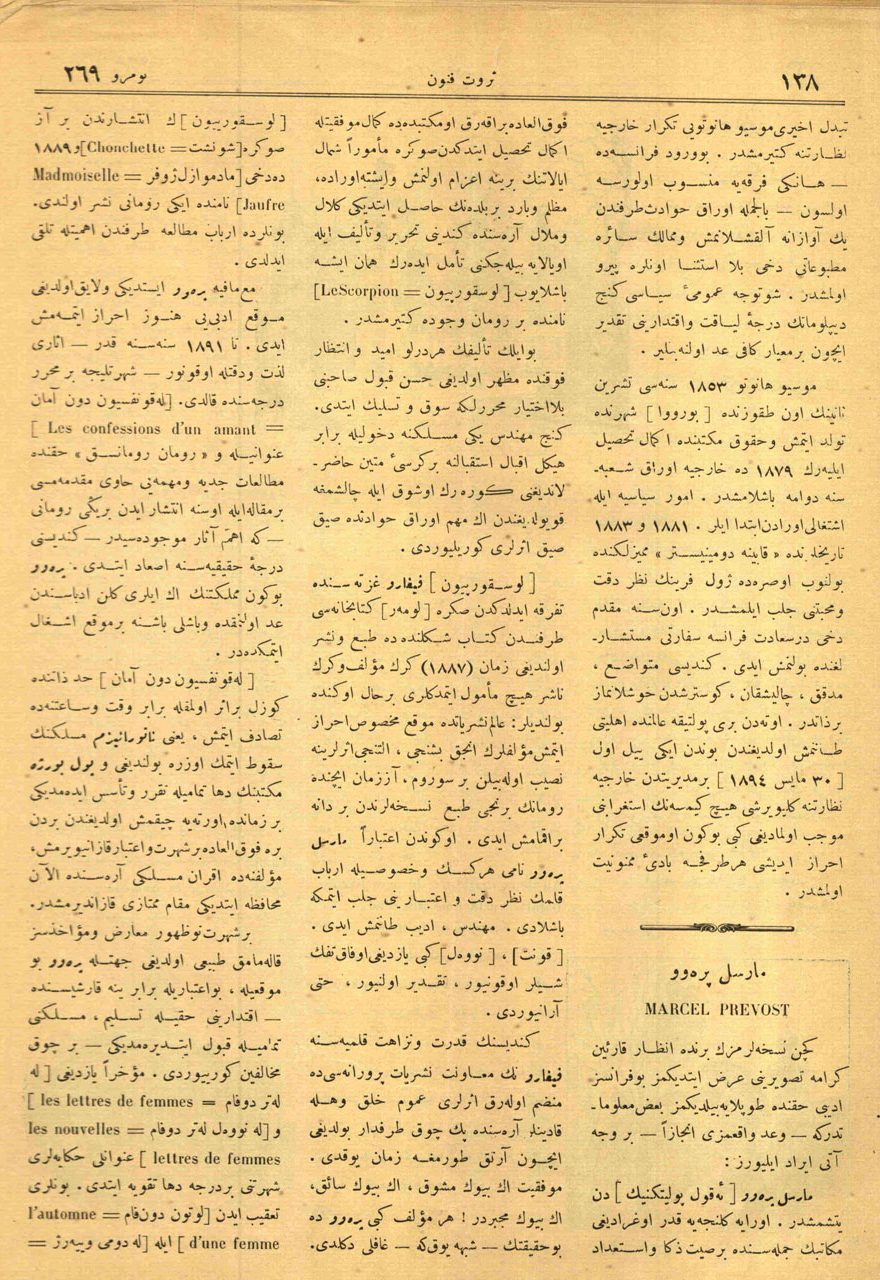 ١٣٨
ثروت فنون
نومرو ٢٦٩
تبدل اخیری موسیو هانوتویی تكرار خارجیه
نظارتنه كتیرمشدر . بوورود فرانسه‌ده
— هانكی فرقه‌یه منسوب اولورسه
اولسون — بالجمله اوراق حوادث طرفندن
پك آوازانه آلقشلانمش وممالك سائره
مطبوعاتی دخی بلا استثنا اونلره پیرو
اولمشدر . شو توجه عمومیٔ سیاسی كنج
دیپلوماتك درجهٔ لیاقت واقتدارینی تقدیر
ایچون برمعیار كافی عد اولنه‌بیلیر .
موسیو هانوتو ١٨٥٣ سنه‌سی تشرین
ثانینك اون طقوزنده [ بورووا ] شهرنده
تولد ایتمش وحقوق مكتبنده اكمال تحصیل
ایلیه‌رك ١٨٧٩ ده خارجیه اوراق شعبه‌ـ
سنه دوامه باشلامشدر . امور سیاسیه ایله
اشتغالی اورادن ابتدا ایلر . ١٨٨١ و ١٨٨٣
تاریخلرنده « قابینه دومینیستر » ممیزلكنده
بولنوب اوصره‌ده ژول فرینك نظر دقت
ومحبتی جلب ایلمشدر . اون سنه مقدم
دخی درسعادت فرانسه سفارتی مستشارـ
لغنده بولنمش ایدی . كندیسی متواضع ،
مدقق ، چالیشقان ، كوسترشدن خوشلانماز
برذاتدر . اوته‌دن بری پولتیقه عالمنده اهلیتی
طانمش اولدیغندن بوندن ایكی ییل اول
[ ٣٠ مایس ١٨٩٤ ] برمدیریتدن خارجیه
نظارتنه كلیویرشی هیچ كیمسه‌نك استغرابنی
موجب اولمادیغی كبی بوكون اوموقعی تكرار
احراز ایدیشی هر طرفجه بادیٔ ممنونیت
اولمشدر .
مارسل پره‌وو
MARCEL PREVOST
كچن نسخه‌لرمزك برنده انظار قارئین
كرامه تصویرینی عرض ایتدیكمز بوفرانسز
ادیبی حقنده طوپلایه‌بیلدیكمز بعض معلوماـ
تدركه — وعد واقعمزی انجازاً — بر وجه
آتی ایراد ایلیورز :
مارسل پره‌وو [ ئه‌قول پولیتكنیك ] دن
یتشمشدر . اورایه كلنجیه قدر اوغرادیغی
مكاتبك جمله‌سنده برصیت ذكا واستعداد
فوق‌العاده براقه‌رق اومكتبده‌ده كمال موفقیتله
اكمال تحصیل ایتدكدن صوكره مأموراً شمال
ایالاتنك برینه اعزام اولنمش وایشته اوراده،
مظلم وبارد بربلده‌نك حاصل ایتدیكی كلال
وملال آره‌سنده كندینی تحریر وتألیف ایله
اویالایه بیله‌جكنی تأمل ایده‌رك همان ایشه
باشلایوب [ لوسقورپیون = LeScorpion]
نامنده بر رومان وجوده كتیرمشدر .
بوایلك تألیفك هردرلو امید و انتظار
فوقنده مظهر اولدیغی حسن قبول صاحبنی
بلااختیار محررلكه سوق و تسلیك ایتدی.
كنج مهندس یكی مسلكنه دخولیله برابر
هیكل اقبال استقبالنه بركرسیٔ متین حاضرـ
لاندیغنی كوره‌رك اوشوق ایله چالشمغه
قویولدیغندن اك مهم اوراق حوادثده صیق
صیق اثرلری كوریلیوردی .
[ لوسقورپیون ] فیغارو غزته سنده
تفرقه ایدلدكدن صكره [لومه‌ر] كتابخانه‌سی
طرفندن كتاب شكلنده ده طبع ونشر
اولندیغی زمان (١٨٨٧) كرك مؤلف وكرك
ناشر هیچ مأمول ایتمدكلری برحال اوكنده
بولندیلر: عالم نشریاتده موقع مخصوص احراز
ایتمش مؤلفلرك انجق بشنجی ، التنجی اثرلرینه
نصیب اوله‌بیلن بر سوروم . آز زمان ایچنده
رومانك برنجی طبع نسخه‌لرندن بر دانه
براقمامش ایدی . اوكوندن اعتباراً مارسل
پره‌وو نامی هركسك وخصوصیله ارباب
قلمك نظر دقت و اعتبارینی جلب ایتمكه
باشلادی . مهندس ، ادیب طانمش ایدی .
[ قونت] ، [ نووه‌ل] كبی یازدیغی اوفاق تفك
شیلر اوقونیور ، تقدیر اولنیور ، حتی
آرانیوردی .
كندیسنك قدرت ونزاهت قلمیه‌سنه
فیغارو نك معاونت نشریات پرورانه‌سی ده
منضم اوله‌رق اثرلری عموم خلق وهله
قادینلر آره‌سنده پك چوق طرفدار بولدیغی
ایچون آرتق طورمغه زمان یوقدی .
موفقیت اك بیوك مشوق ، اك بیوك سائق،
اك بیوك مجبردر ! هر مؤلف كبی پره‌وو ده
بوحقیقتك — شبهه یوق كه — غافلی دكلدی.
[ لوسقورپیون ] ك انتشارندن بر آز
صوكره [شونشت = Chonchette] و ١٨٨٩
ده‌دخی [مادموازل ژوفر = Madmoiselle
Jaufre] نامنده ایكی رومانی نشر اولندی.
بونلرده ارباب مطالعه طرفندن اهمیتله تلقی
ایدلدی .
مع‌مافیه پره‌وو ایستدیكی ولایق اولدیغی
موقع ادبی‌یی هنوز احراز ایتمه‌مش
ایدی . تا ١٨٩١ سنه سنه قدر — آثاری
لذت ودقتله اوقونور — شهرتلیجه بر محرر
درجه‌سنده قالدی. [له‌قونفسیون دون آمان
= Les confessions d'un amant ]
عنوانیله و « رومان رومانسق » حقنده
مطالعات جدیه ومهمه‌یی حاوی مقدمه‌سی
برمقاله ایله اوسنه انتشار ایدن بریكی رومانی
— كه اهمّ آثار موجوده‌سیدر — كندیسنی
درجهٔ حقیقیه‌سنه اصعاد ایتدی . پره‌وو
بوكون مملكتنك اك ایلری كلن ادباسندن
عد اولنمقده وباشلی باشنه برموقع اشغال
ایتمكده‌در .
[ له‌قونفسیون دون آمان ] حد ذاتنده
كوزل براثر اولمغله برابر وقت وساعتنه‌ده
تصادف ایتمش ، یعنی ناتورالیزم مسلكنك
سقوط ایتمك اوزره بولندیغی و پول بورژه
مكتبنك دها تمامیله تقرر وتأسس ایده‌مدیكی
بر زمانده اورته‌یه چیقمش اولدیغندن بردن
بره فوق‌العاده برشهرت واعتبار قازانیویرمش،
مؤلفنه‌ده اقران مسلكی آره‌سنده الآن
محافظه ایتدیكی مقام ممتازی قازاندیرمشدر.
برشهرت نوظهور معارض ومؤاخذسز
قاله‌مامق طبیعی اولدیغی جهتله پره‌وو بو
موقعیله ، بواعتباریله برابر ینه قارشیسنده
— اقتدارینی حقیله تسلیم ، مسلكنی
تمامیله قبول ایتدیره‌مدیكی — بر چوق
مخالفین كورییوردی . مؤخراً یازدیغی [ له
له‌تر دوفام = les lettres de femmes ]
و [له نووه‌ل له‌تر دوفام = les nouvelles
lettres de femmes ] عنوانلی حكایه‌لری
شهرتنی بردرجه دها تقویه ایتدی . بونلری
تعقیب ایدن [لوتون دون‌فام = l'automne
d'une femme ] ایله [له دومی وییه‌رژ =